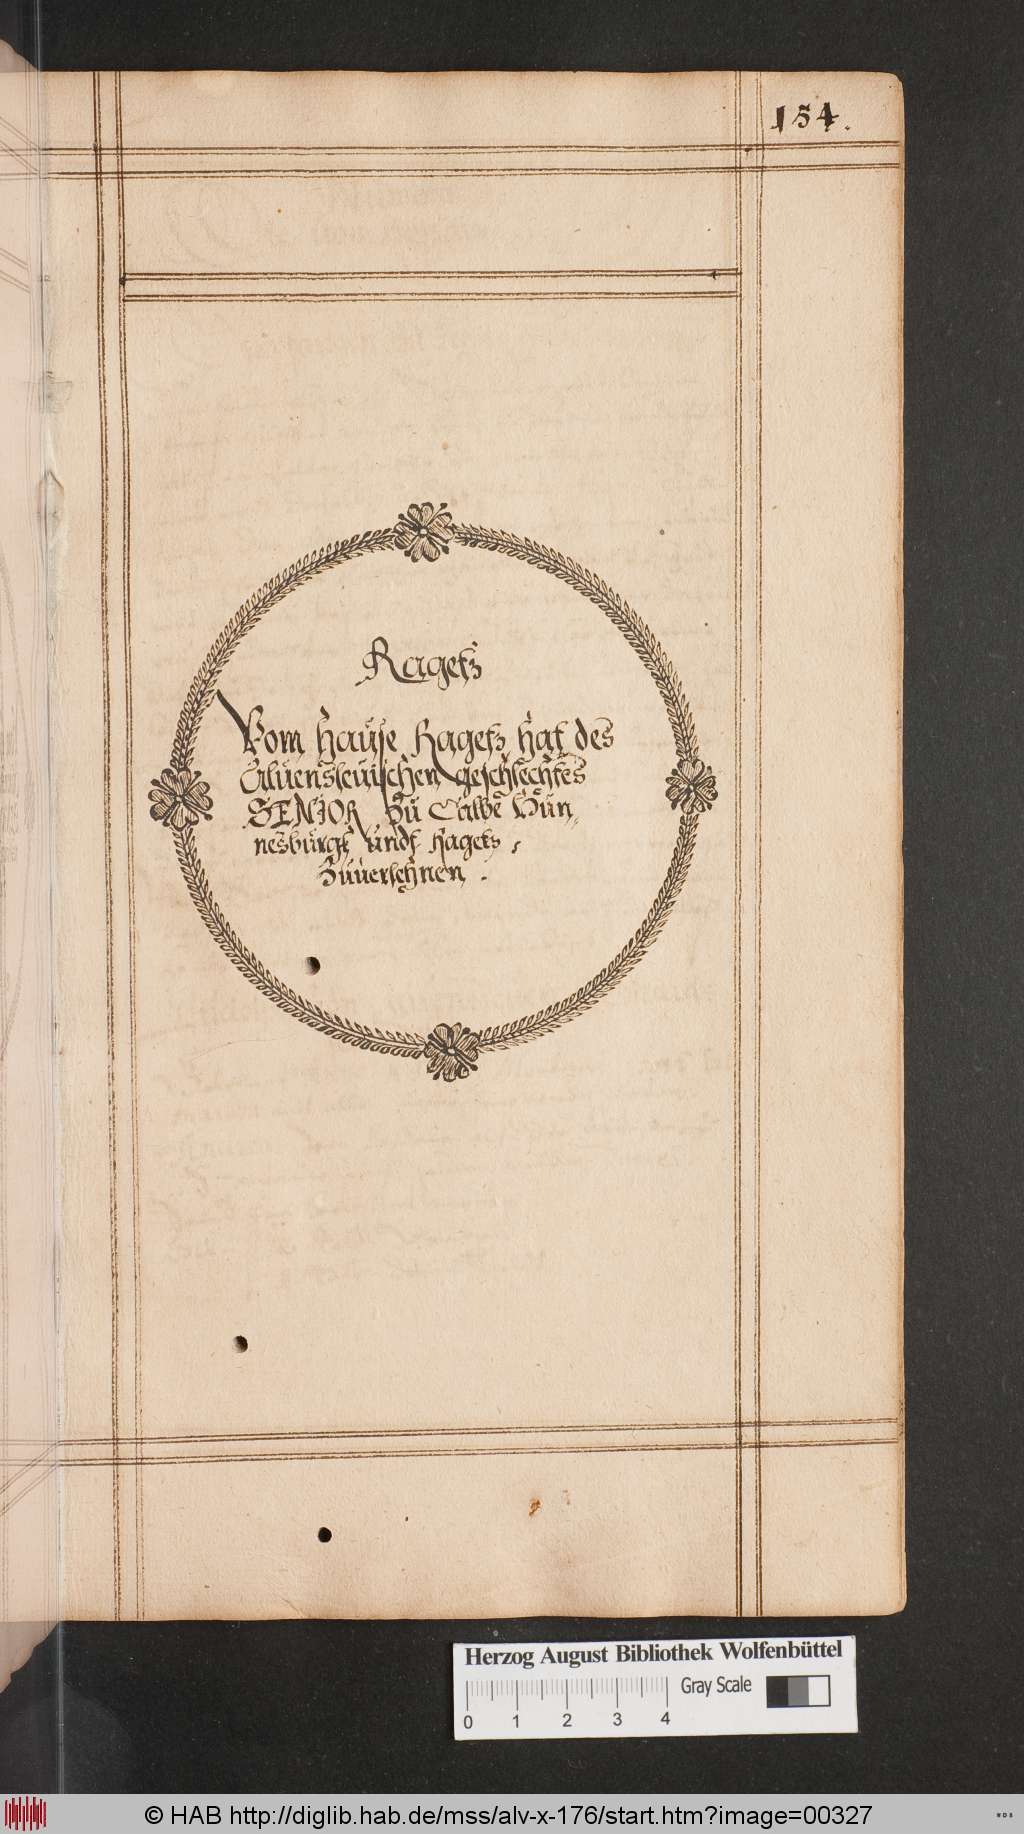 154.
Ragetz
Vom hause Ragetz hat des
Aluenslevischen geschlechtes
SENIOR zu Calbe Hün,,
nesburgk undt Ragetz,
Zuuerlehnen.
Herzog August Bibliothek Wolfenbüttel
Gray Scale
0 1 2 3 4
© HAB http://diglib.hab.de/mss/alv-x-176/start.htm?image=00327